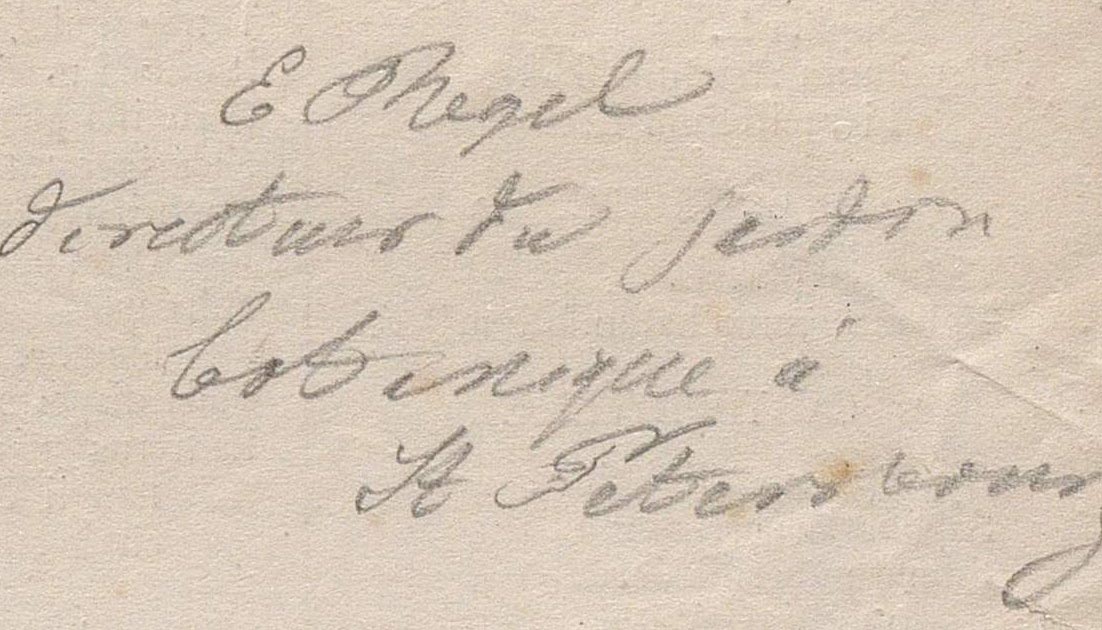 E Regel
directeur du jardin
botanique à
St Petersbourg